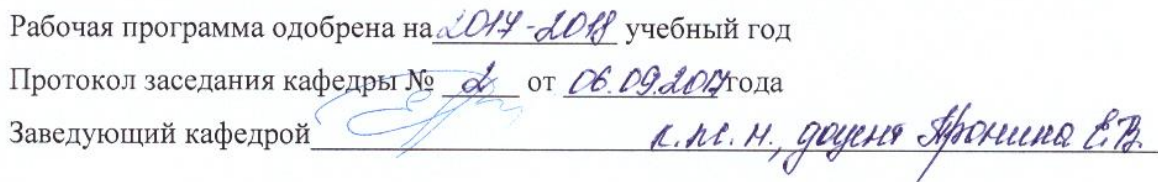 Рабочая программа одобрена на 2017-2018 учебный год
Протокол заседания кафедры № 2 от 06.09.2017 года
Заведующий кафедрой к.пс.н., доцент Пронина Е.В.